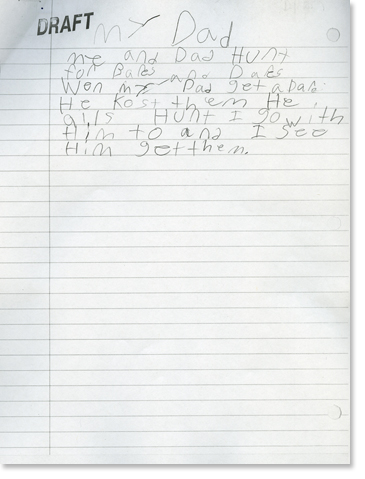 DRAFT
MY Dad
me and Dad HUNT
for Bares and Dares
Wen my Dad get a Dare
He Kost them He
HUNT I go with
Him to and I see
Him get them.